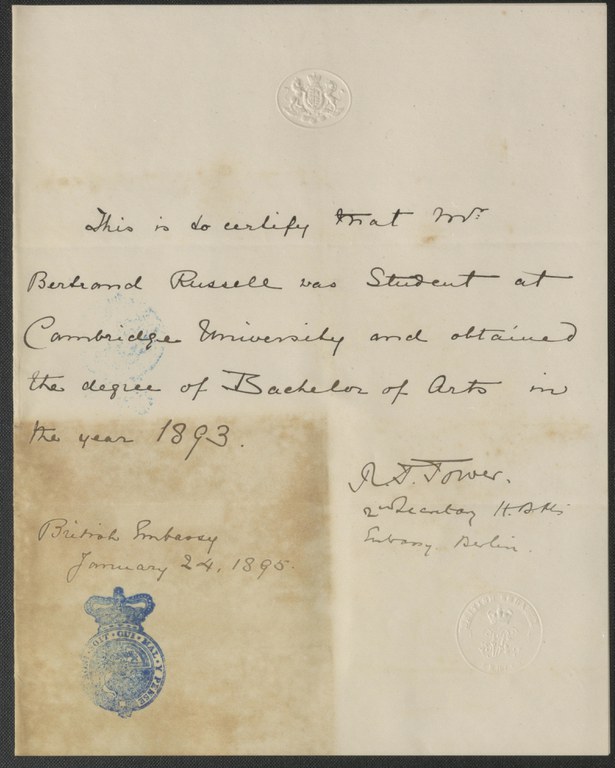 This is to certify that Mr.
Bertrand Russell was Student at
Cambridge University and obtained
the degree of Bachelor of Arts in
the year 1893.
R. T. Tower.
2nd Secretary H.B.M's
Embassy Berlin.
British Embassy
January 24, 1895.
SOIT · QUI · MAL · Y · PENSE